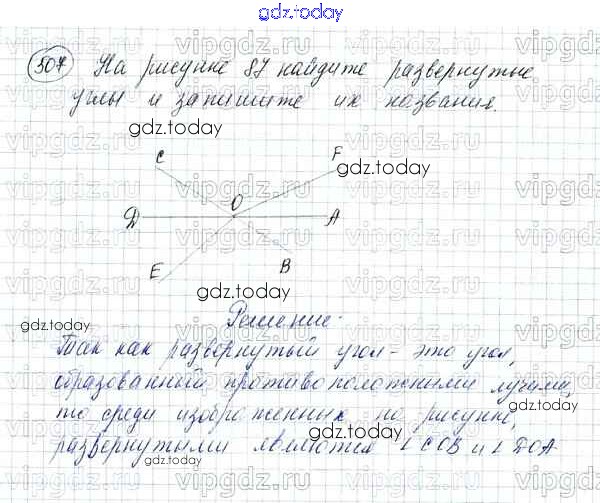 gdz.today
507 На рисунке 87 найдите развернутые
углы и запишите их названия.
gdz.today
C F
gdz.today
O
D A
E B
gdz.today
Решение.
gdz.today
Так как развернутый угол - это угол,
образованный противоположными лучами,
то среди изображенных на рисунке,
gdz.today
развернутыми являются ∠COB и ∠DOA
gdz.today
vipgdz.ru